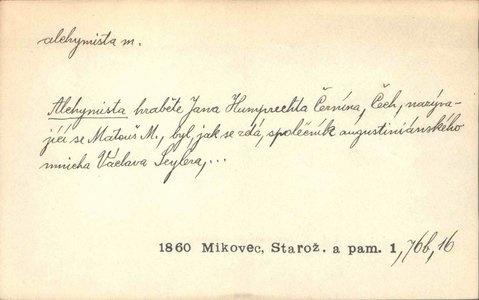 alchymista m.
Alchymista hraběte Jana Humprechta Černína, Čech, nazýva-
jící se Matouš M., byl, jak se zdá, společník augustiniánského
mnicha Václava Seylera,...
1860 Mikovec, Starož. a pam. 1, 76b, 16